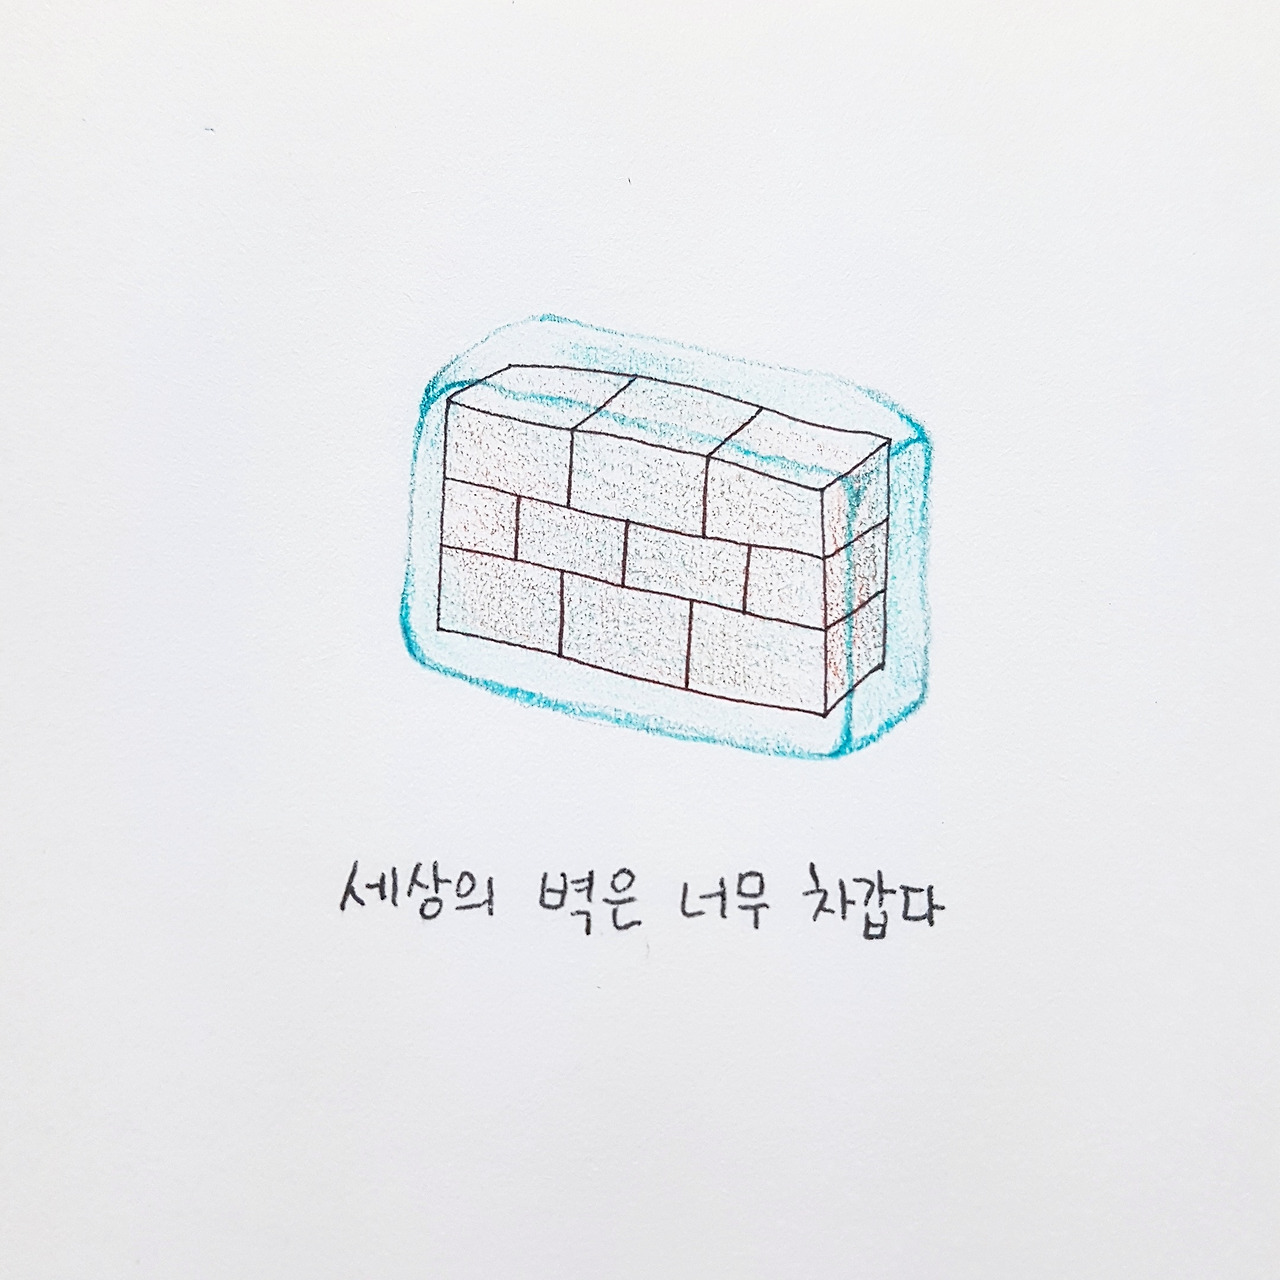 세상의 벽은 너무 차갑다